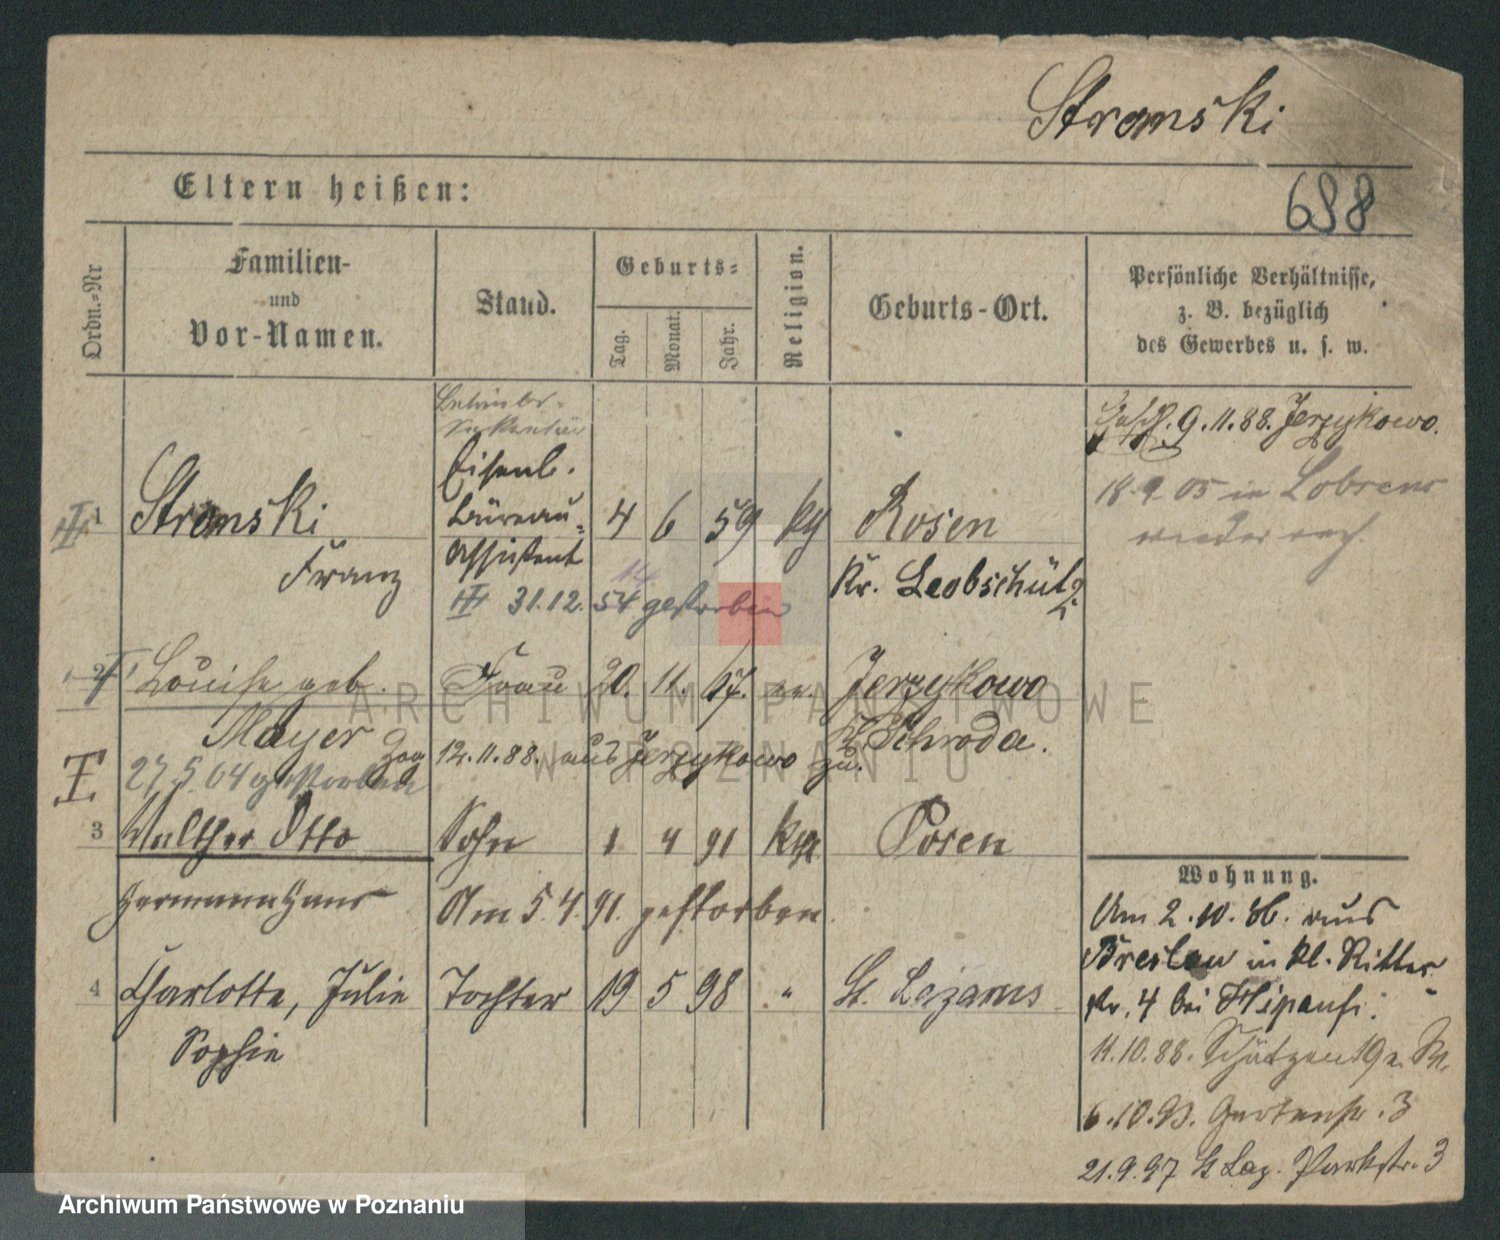 Stromski
698
Eltern heißen:
Ordn.-Nr
Familien-
und
Vor-Namen.
Stand.
Geburts-
Tag.
Monat.
Jahr.
Religion.
Geburts-Ort.
Persönliche Verhältnisse,
z. B. bezüglich
des Gewerbes u. s. w.
Gesch. 9.11.88. Jerzykowo.
18. 9 05 in
wieder
Eisenb.
Büreau-
Assistent
1 Stromski
Franz
4 6 59
Rosen
Kr. Leobschütz
31.12. 54 gestorben
2 Louise geb. Frau 20. 11. 67. ev. Jerzykowo
Mayer
Kr. Schroda.
Zog 12.11.88. aus Jerzykowo zu.
27.5.04 gestorben
3 Walther Otto Sohn 1 4 91 Posen
Hermann Hans
Am 5.4.91. gestorben.
4 Charlotte, Julie Tochter 19 5 98 " St. Lazarus
Sophie
Wohnung.
Am 2.10.86. aus
Breslau in kl. Ritter-
str. 4 bei
11.10.88. Schützen 19a.
6.10.93. Gartenstr. 3
21.9.97 St Laz. Parkstr. 3
ARCHIWUM PAŃSTWOWE
W POZNANIU
Archiwum Państwowe w Poznaniu